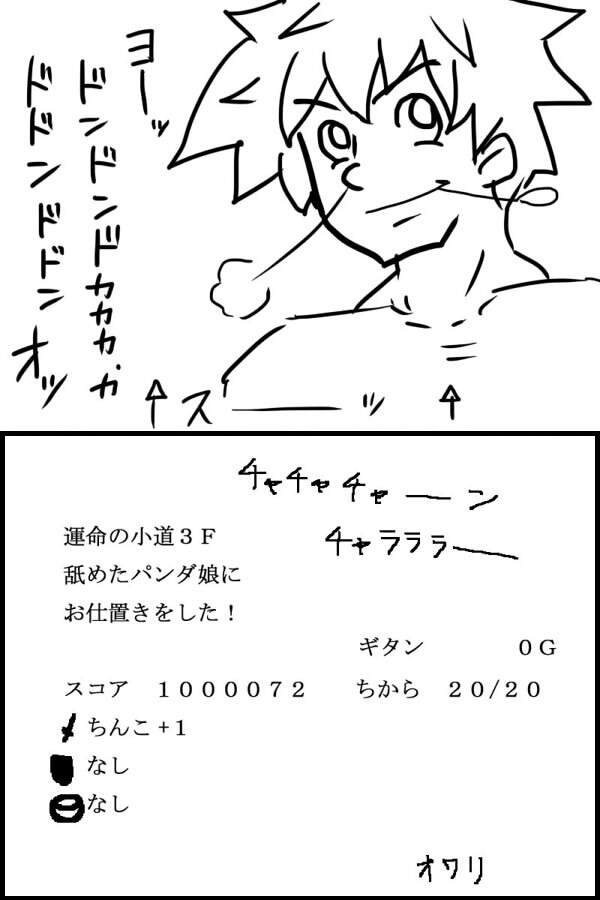 ヨーッ
ドンドンドカカカ.カ
ドドンドドンオッ
スーッ
チャチャチャーン
チャラララー
運命の小道３Ｆ
舐めたパンダ娘に
お仕置きをした！
ギタン　０Ｇ
スコア　１００００７２　ちから　２０/２０
ちんこ+１
なし
なし
オワリ